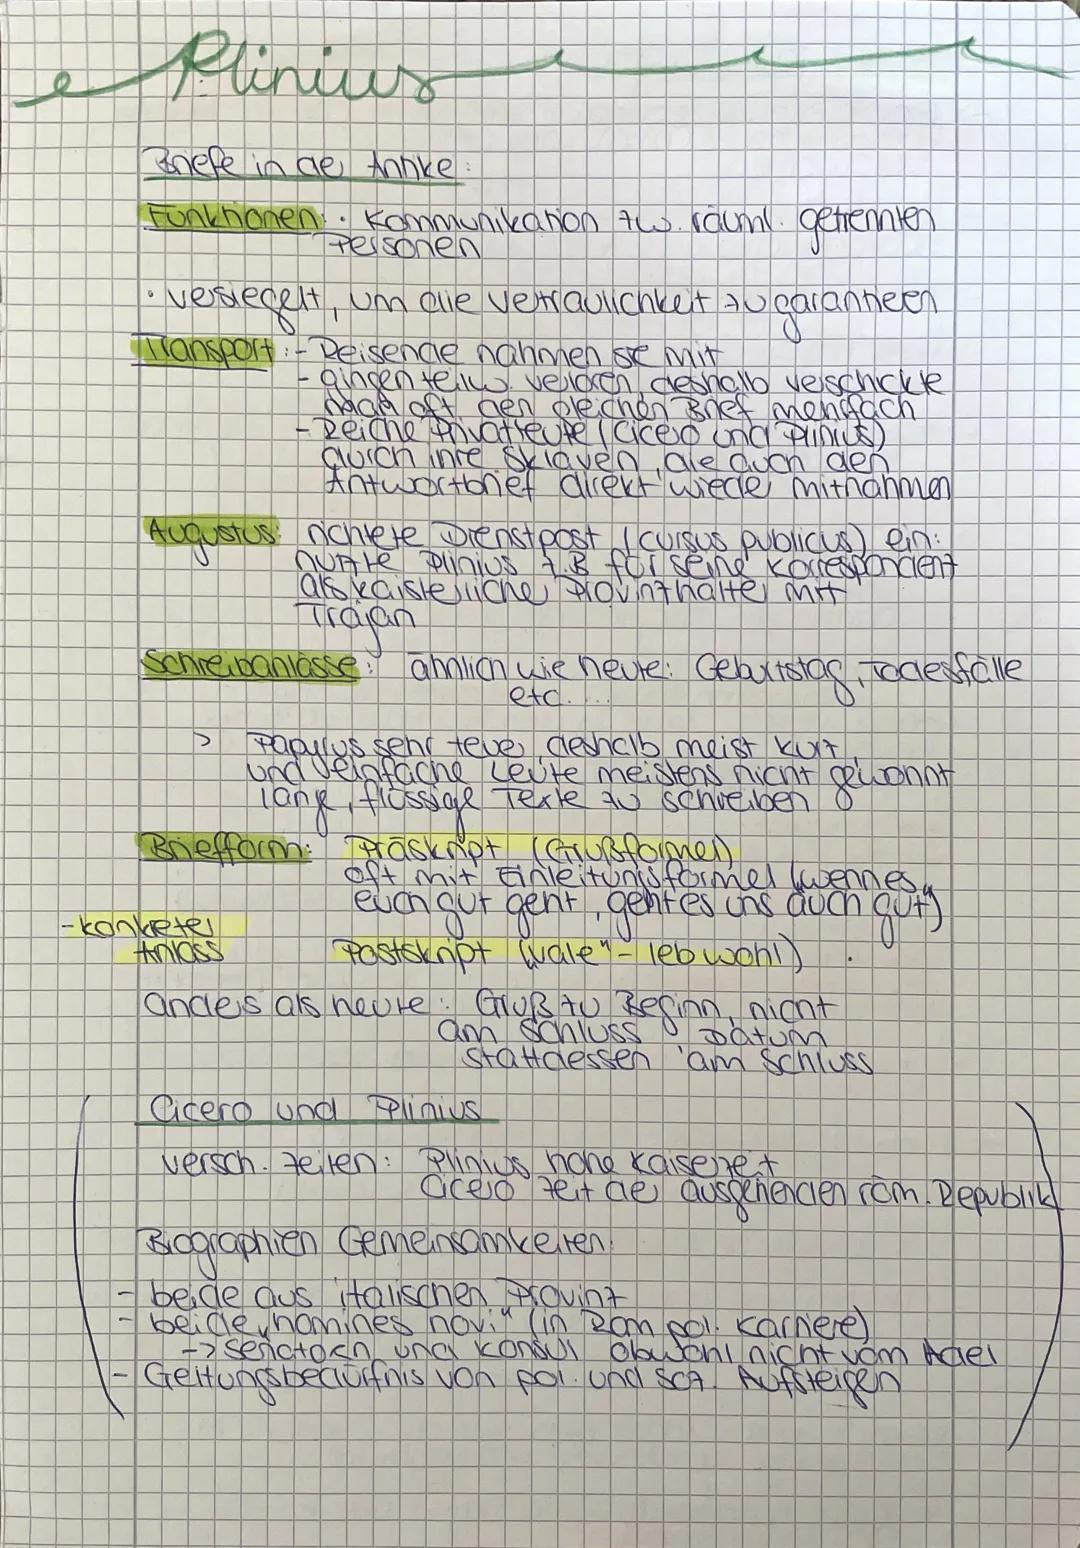 Plinius
Briefe in der Antike:
Funktionen: · Kommunikation zw. räuml. getrennten
Personen
· versiegelt, um die Vertraulichkeit zu garantieren
Transport: - Reisende nahmen sie mit
- gingen teilw. verloren, deshalb verschickte
man oft den gleichen Brief mehrfach
- Reiche Privatleute (Cicero und Plinius)
durch ihre Sklaven, die auch den
Antwortbrief direkt wieder mitnahmen
Augustus: richtete Dienstpost (cursus publicus) ein:
nutzte Plinius z.B für seine Korrespondent
als kaiserliche Provinzhalter mit
Trajan
Schreibanlässe: ähnlich wie heute: Geburtstag, Todesfälle
etc....
> Papyrus sehr teuer deshalb meist kurz,
und einfache Leute meistens nicht gewohnt
lange, flüssige Texte zu schreiben
Briefform: Präskript (Grußformel)
oft mit Einleitungsformel (wenn es
euch gut geht, geht es uns auch gut")
- konkreter
Anlass
Postskript (vale" - leb wohl)
anders als heute: Gruß zu Beginn, nicht
am Schluss, Datum
stattdessen am Schluss
Cicero und Plinius
versch. Zeiten: Plinius hohe Kaiserzeit
Cicero Zeit der ausgehenden röm. Republik
Biographien Gemeinsamkeiten:
- beide aus italischen Provinz
- beide „homines novi" (in Rom pol. Karriere)
-> Senatoren und Konsul obwohl nicht vom Adel
- Geltungsbedürfnis von pol. und soz. Aufsteigen